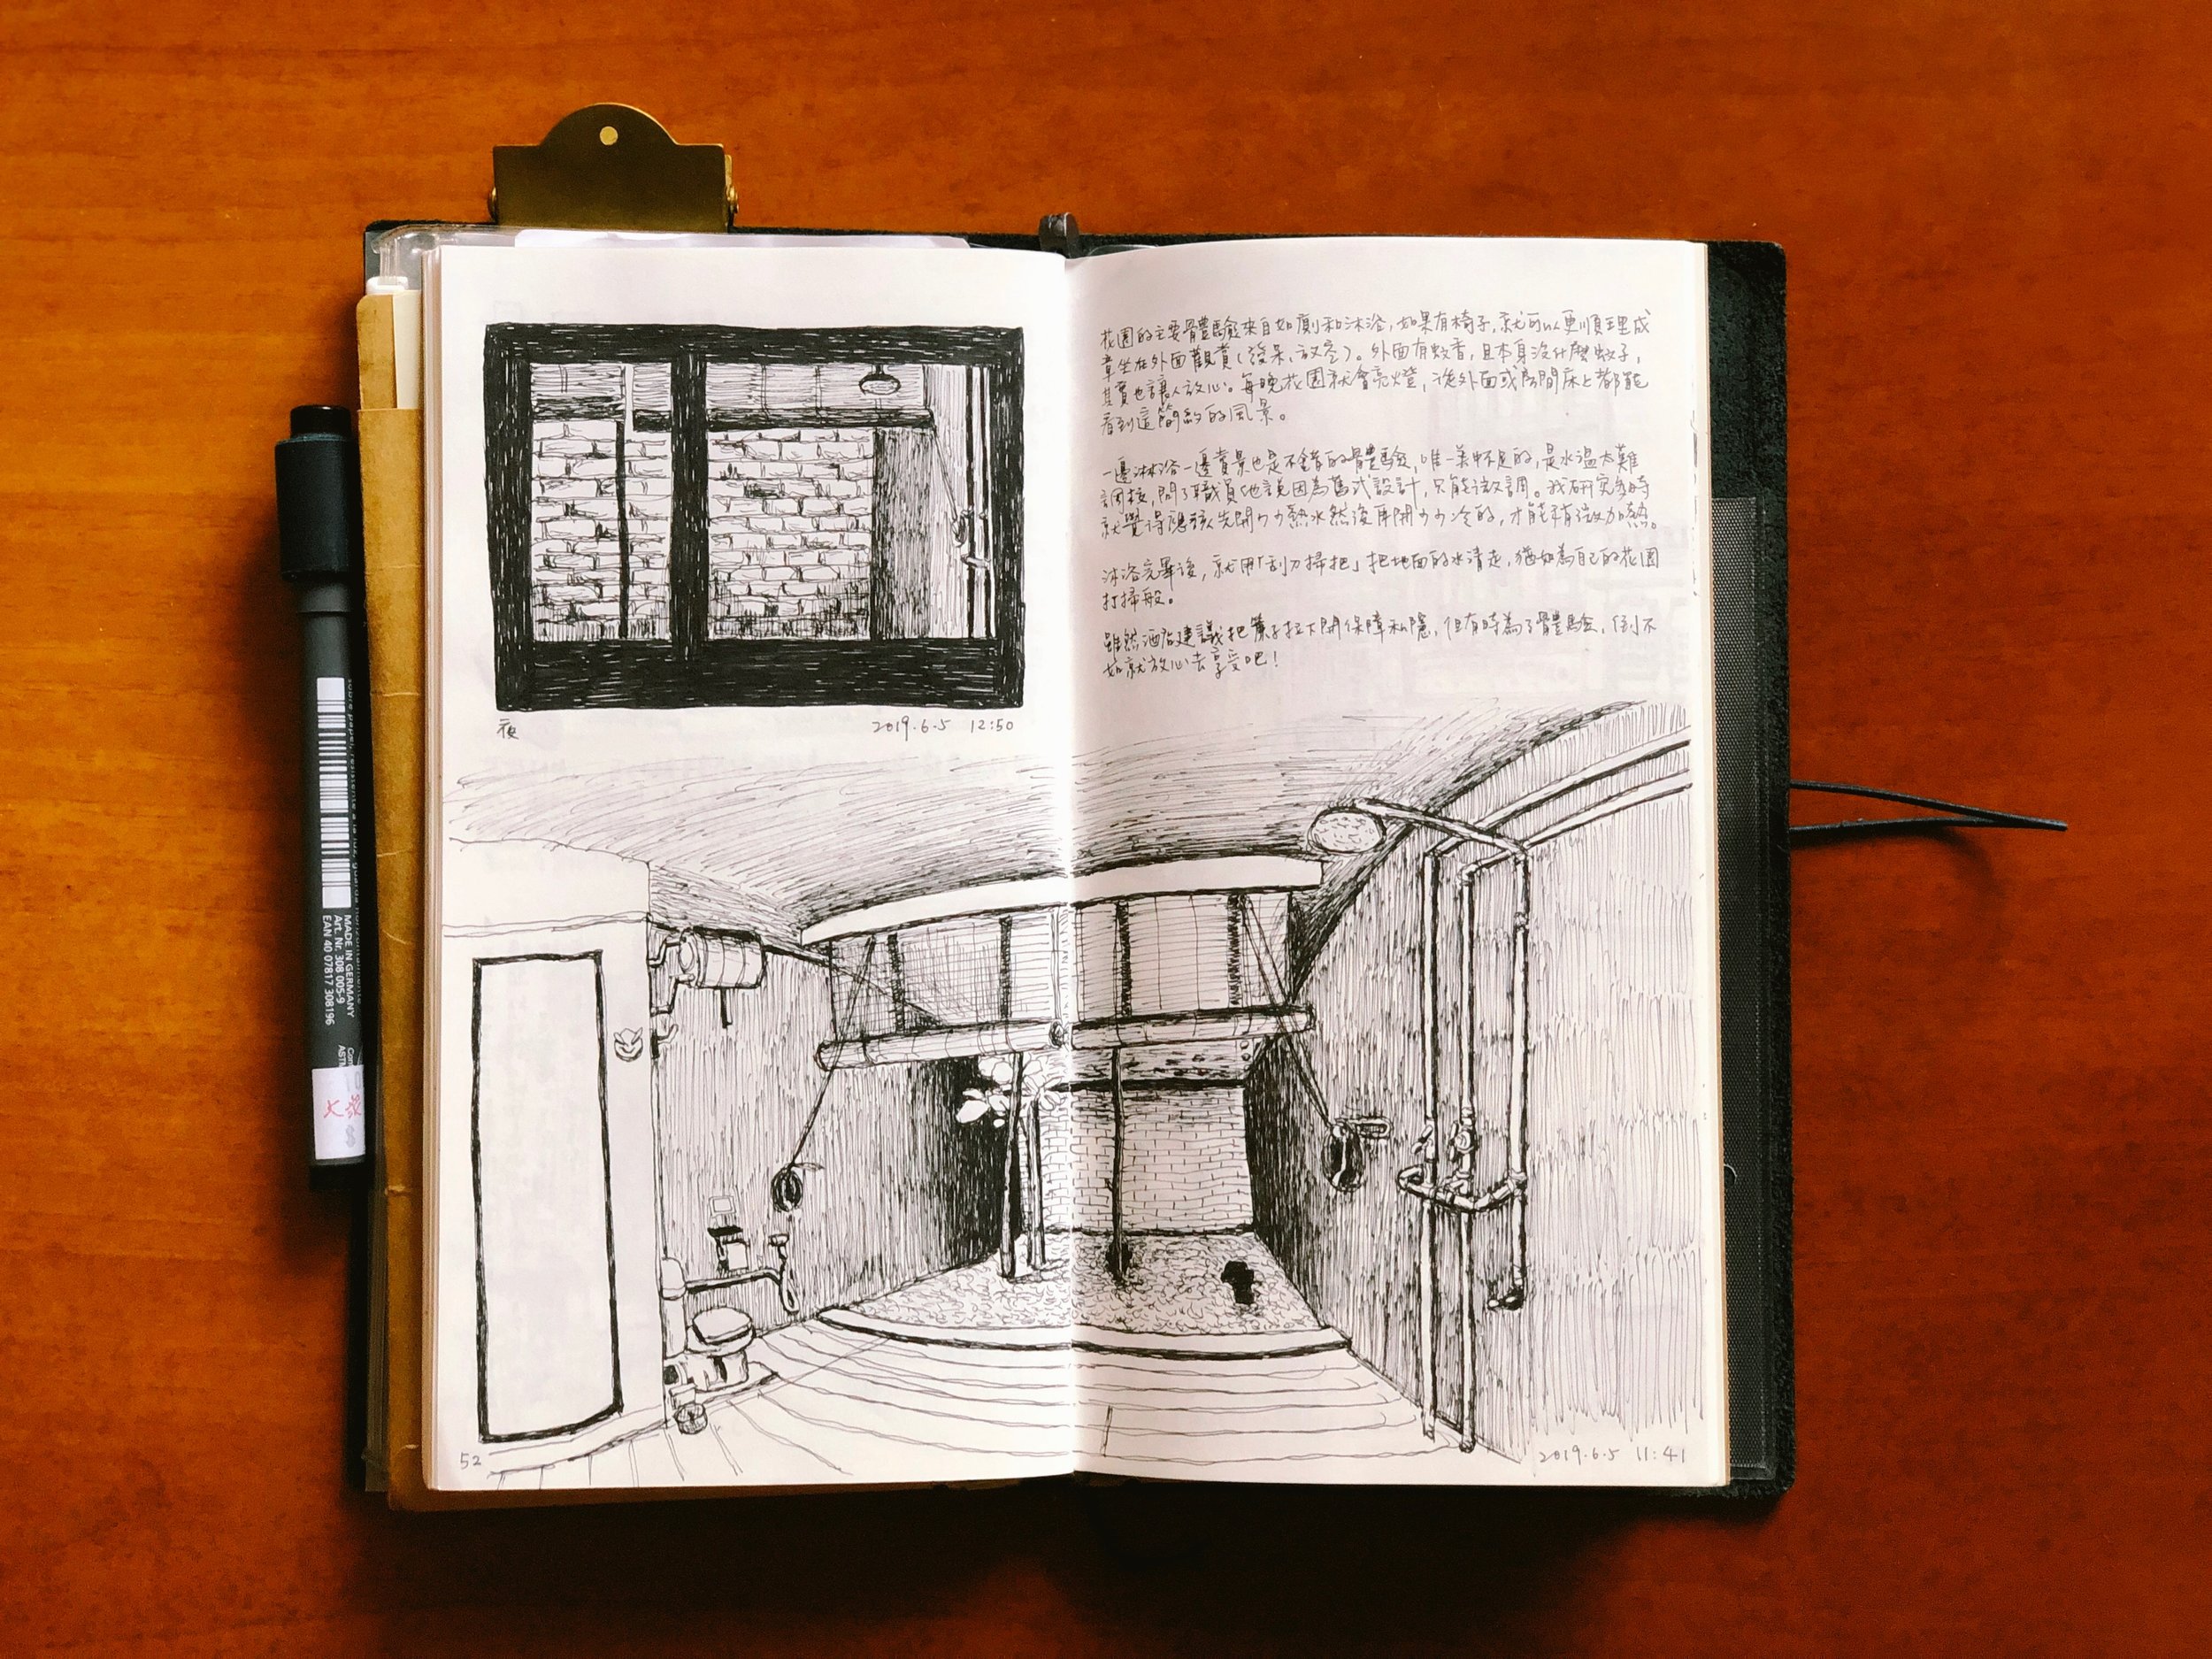 花園的主要體驗來自如廁和沐浴，如果有椅子，就可以更順理成
章坐在外面觀賞（發呆、放空）。外面有蚊香，且本身沒什麼蚊子，
其實也讓人放心。每晚花園就會亮燈，從外面或房間床上都能
看到這簡致的風景。
一邊沐浴一邊賞景也是不錯的體驗，唯一美中不足的，是水溫太難
調校，問了職員他說因為舊式設計，只能微調。我研究多時
就覺得應該先開少少熱水然後再開少少冷的，才能有微加熱。
沐浴完畢後，就用「刮刀掃把」把地面的水清走，猶如為自己的花園
打掃般。
雖然酒店建議把簾子拉下開保障私隱，但有時為了體驗，倒不
如就放心去享受吧！
夜
2019.6.5 12:50
52
2019.6.5 11:41
MADE IN GERMANY
Art. Nr. 308 005-9
EAN 40 07817 308196